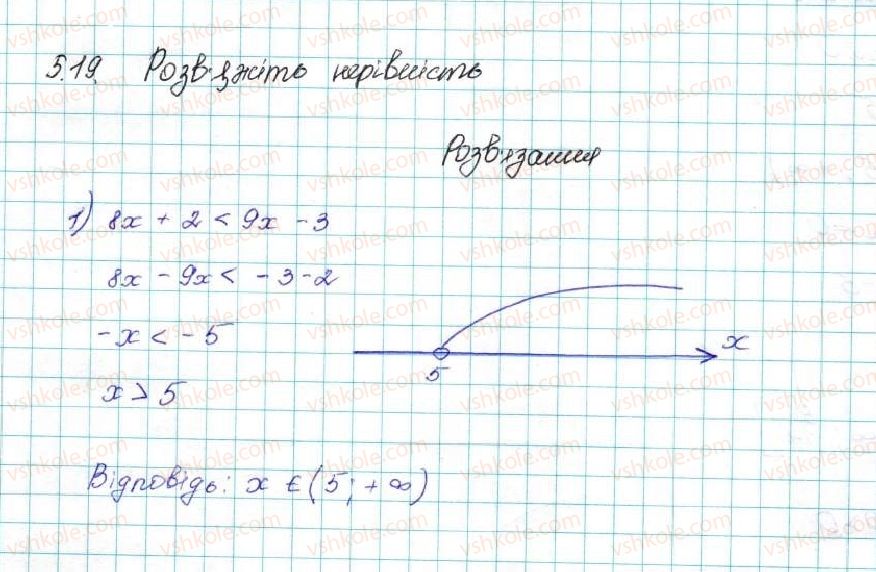 5.19. Розв'яжіть нерівність
Розв'язання
1) 8x + 2 < 9x - 3
8x - 9x < - 3 - 2
- x < - 5
x > 5
5
x
Відповідь: x ∈ (5; + ∞)
vshkole.com